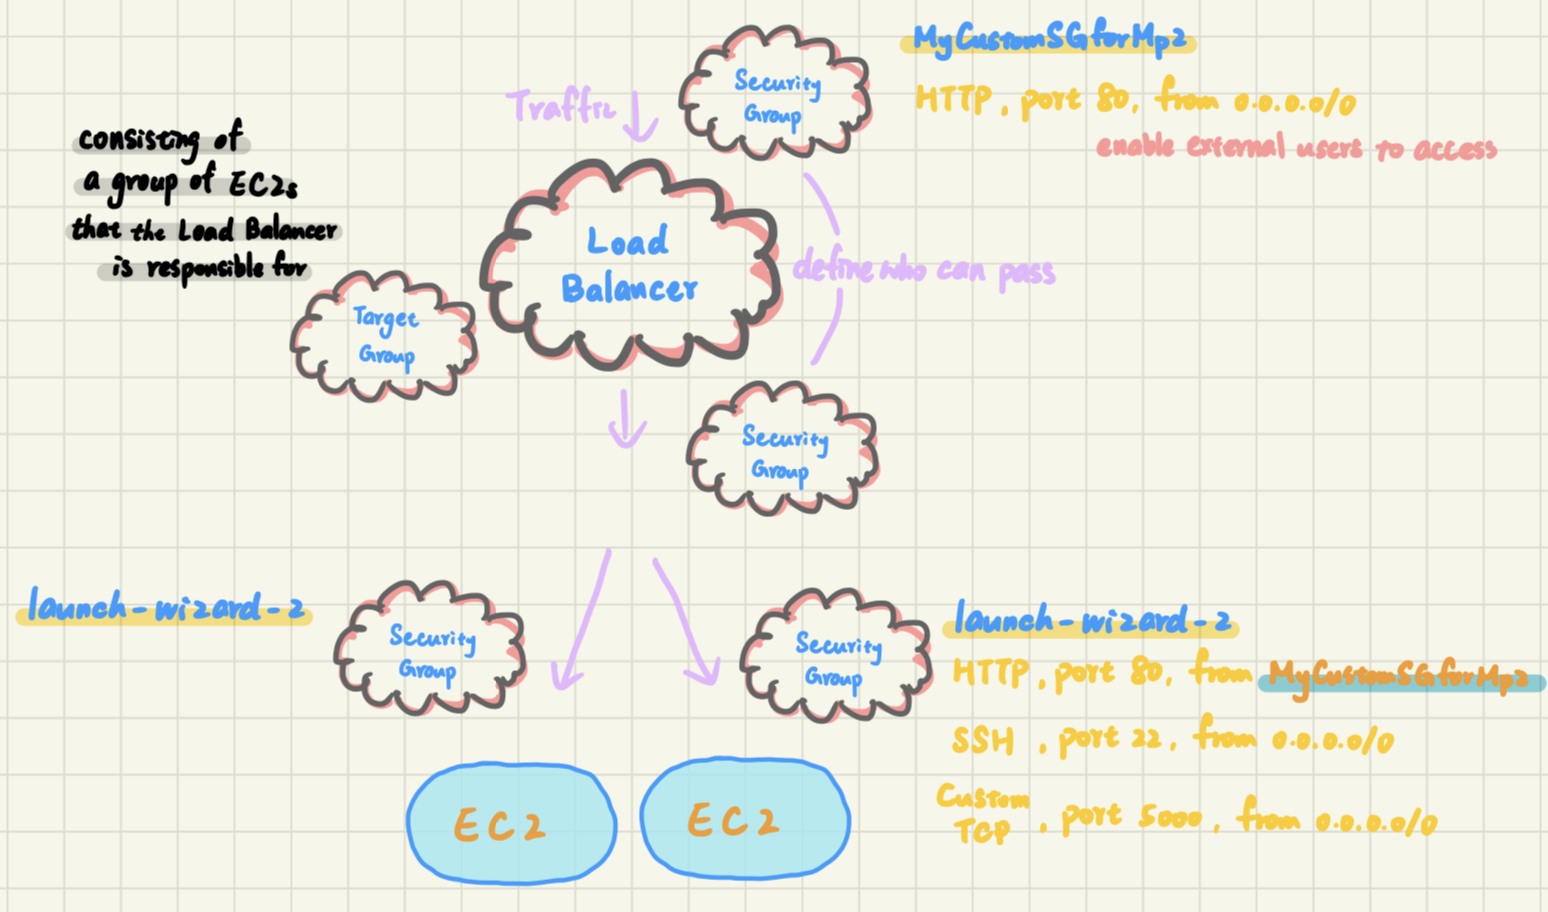 MyCustomSGforMp2
Security
Group
HTTP, port 80, from 0.0.0.0/0
enable external users to access
Traffic
consisting of
a group of EC2s
that the Load Balancer
is responsible for
Load
Balancer
define who can pass
Target
Group
Security
Group
launch-wizard-2
Security
Group
Security
Group
launch-wizard-2
HTTP, port 80, from MyCustomSGforMp2
SSH, port 22, from 0.0.0.0/0
Custom
TCP, port 5000, from 0.0.0.0/0
EC2
EC2